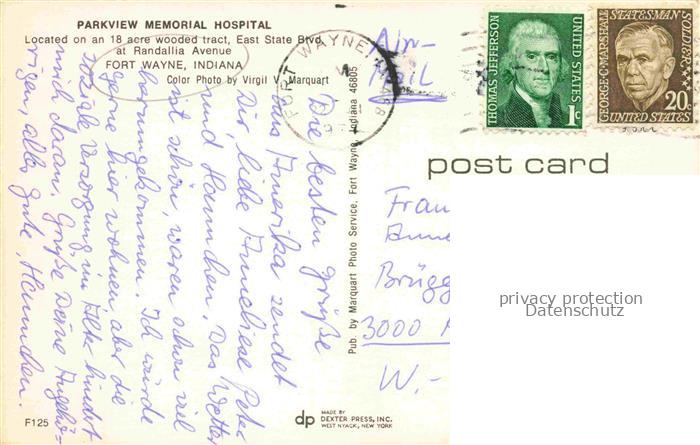 PARKVIEW MEMORIAL HOSPITAL
Located on an 18 acre wooded tract, East State Blvd.
at Randallia Avenue
FORT WAYNE, INDIANA
Color Photo by Virgil V. Marquart
Die besten Grüße
aus Amerika sendet
Dir, liebe Anneliese Peter
und Hannchen. Das Wetter
ist schön, waren schon viel
herumgekommen. Ich würde
gerne hier wohnen aber die
soziale Versorgung im Alter hindert
mich daran. Grüße Deine Angehö-
rigen, alles Gute, Hannchen.
F125
Pub. by Marquart Photo Service, Fort Wayne, Indiana 46805
dp
MADE BY
DEXTER PRESS, INC.
WEST NYACK, NEW YORK
FORT WAYNE
Air-
Mail
THOMAS JEFFERSON
UNITED STATES
1c
GEORGE C. MARSHALL
STATESMAN
SOLDIER
20c
UNITED STATES
post card
Frau
Anne
Brügg
3000
W.-
privacy protection
Datenschutz